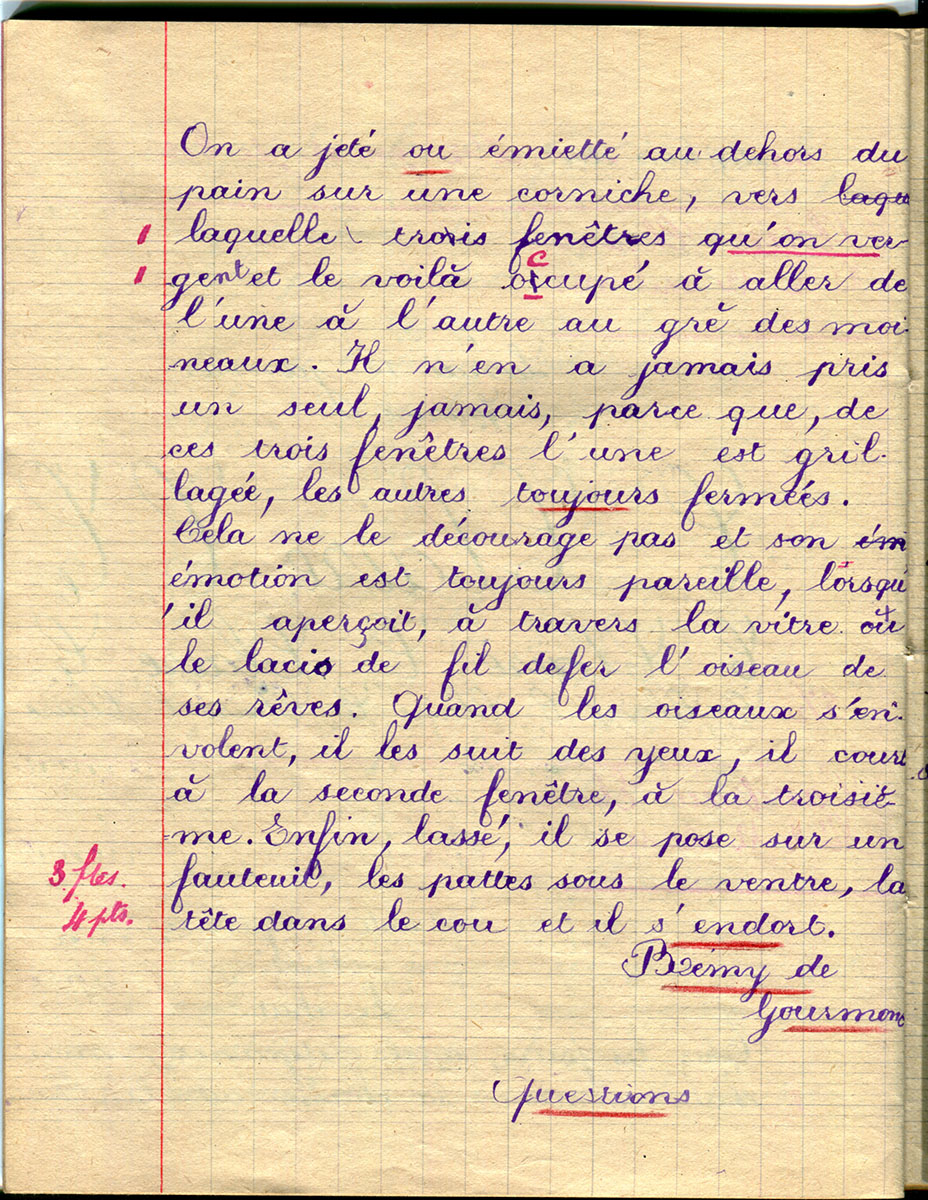 On a jeté ou émietté au dehors du
pain sur une corniche, vers laqu
1 laquelle trois fenêtres qu'on ver-
c
1 gent et le voilà occupé à aller de
l'une à l'autre au gré des moi-
neaux. Il n'en a jamais pris
un seul, jamais, parce que, de
ces trois fenêtres l'une est gril-
lagée, les autres toujours fermées.
Cela ne le décourage pas et son ém
émotion est toujours pareille, lorsqu
'il aperçoit, à travers la vitre où
le lacis de fil de fer l'oiseau de
ses rêves. Quand les oiseaux s'en-
volent, il les suit des yeux, il court
à la seconde fenêtre, à la troisiè-
me. Enfin, lassé, il se pose sur un
3 ftes. fauteuil, les pattes sous le ventre, la
4 pts. tête dans le cou et il s'endort.
Rémy de
Gourmont
Questions